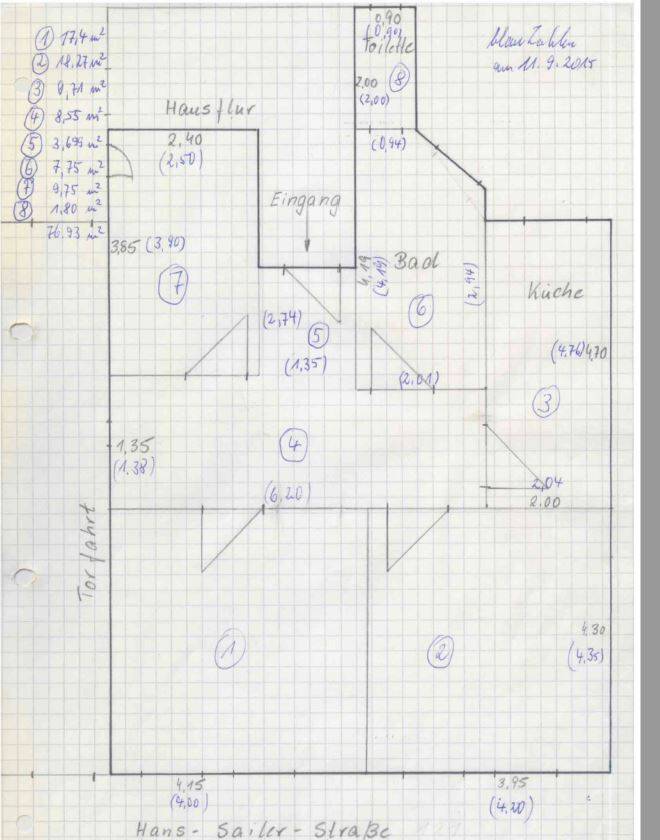 ① 17,4 m²
② 18,27 m²
③ 9,71 m²
④ 8,55 m²
⑤ 3,699 m²
⑥ 7,75 m²
⑦ 9,75 m²
⑧ 1,80 m²
76.93 m²
0,90
(0,90)
Toilette
2.00
⑧
(2,00)
(0,94)
blaue Zahlen
am 11.9.2015
Hausflur
2,40
(2,50)
Eingang
3,85 (3,90)
⑦
4,19
(4,19)
Bad
⑥
(2,94)
Küche
(2,74)
⑤
(1,35)
(2,01)
(4,76) 4,70
③
1,35
(1,38)
④
(6,20)
2,04
2.00
Torfahrt
①
②
4.30
(4,35)
4,15
(4,00)
3,95
(4,20)
Hans-Sailer-Straße